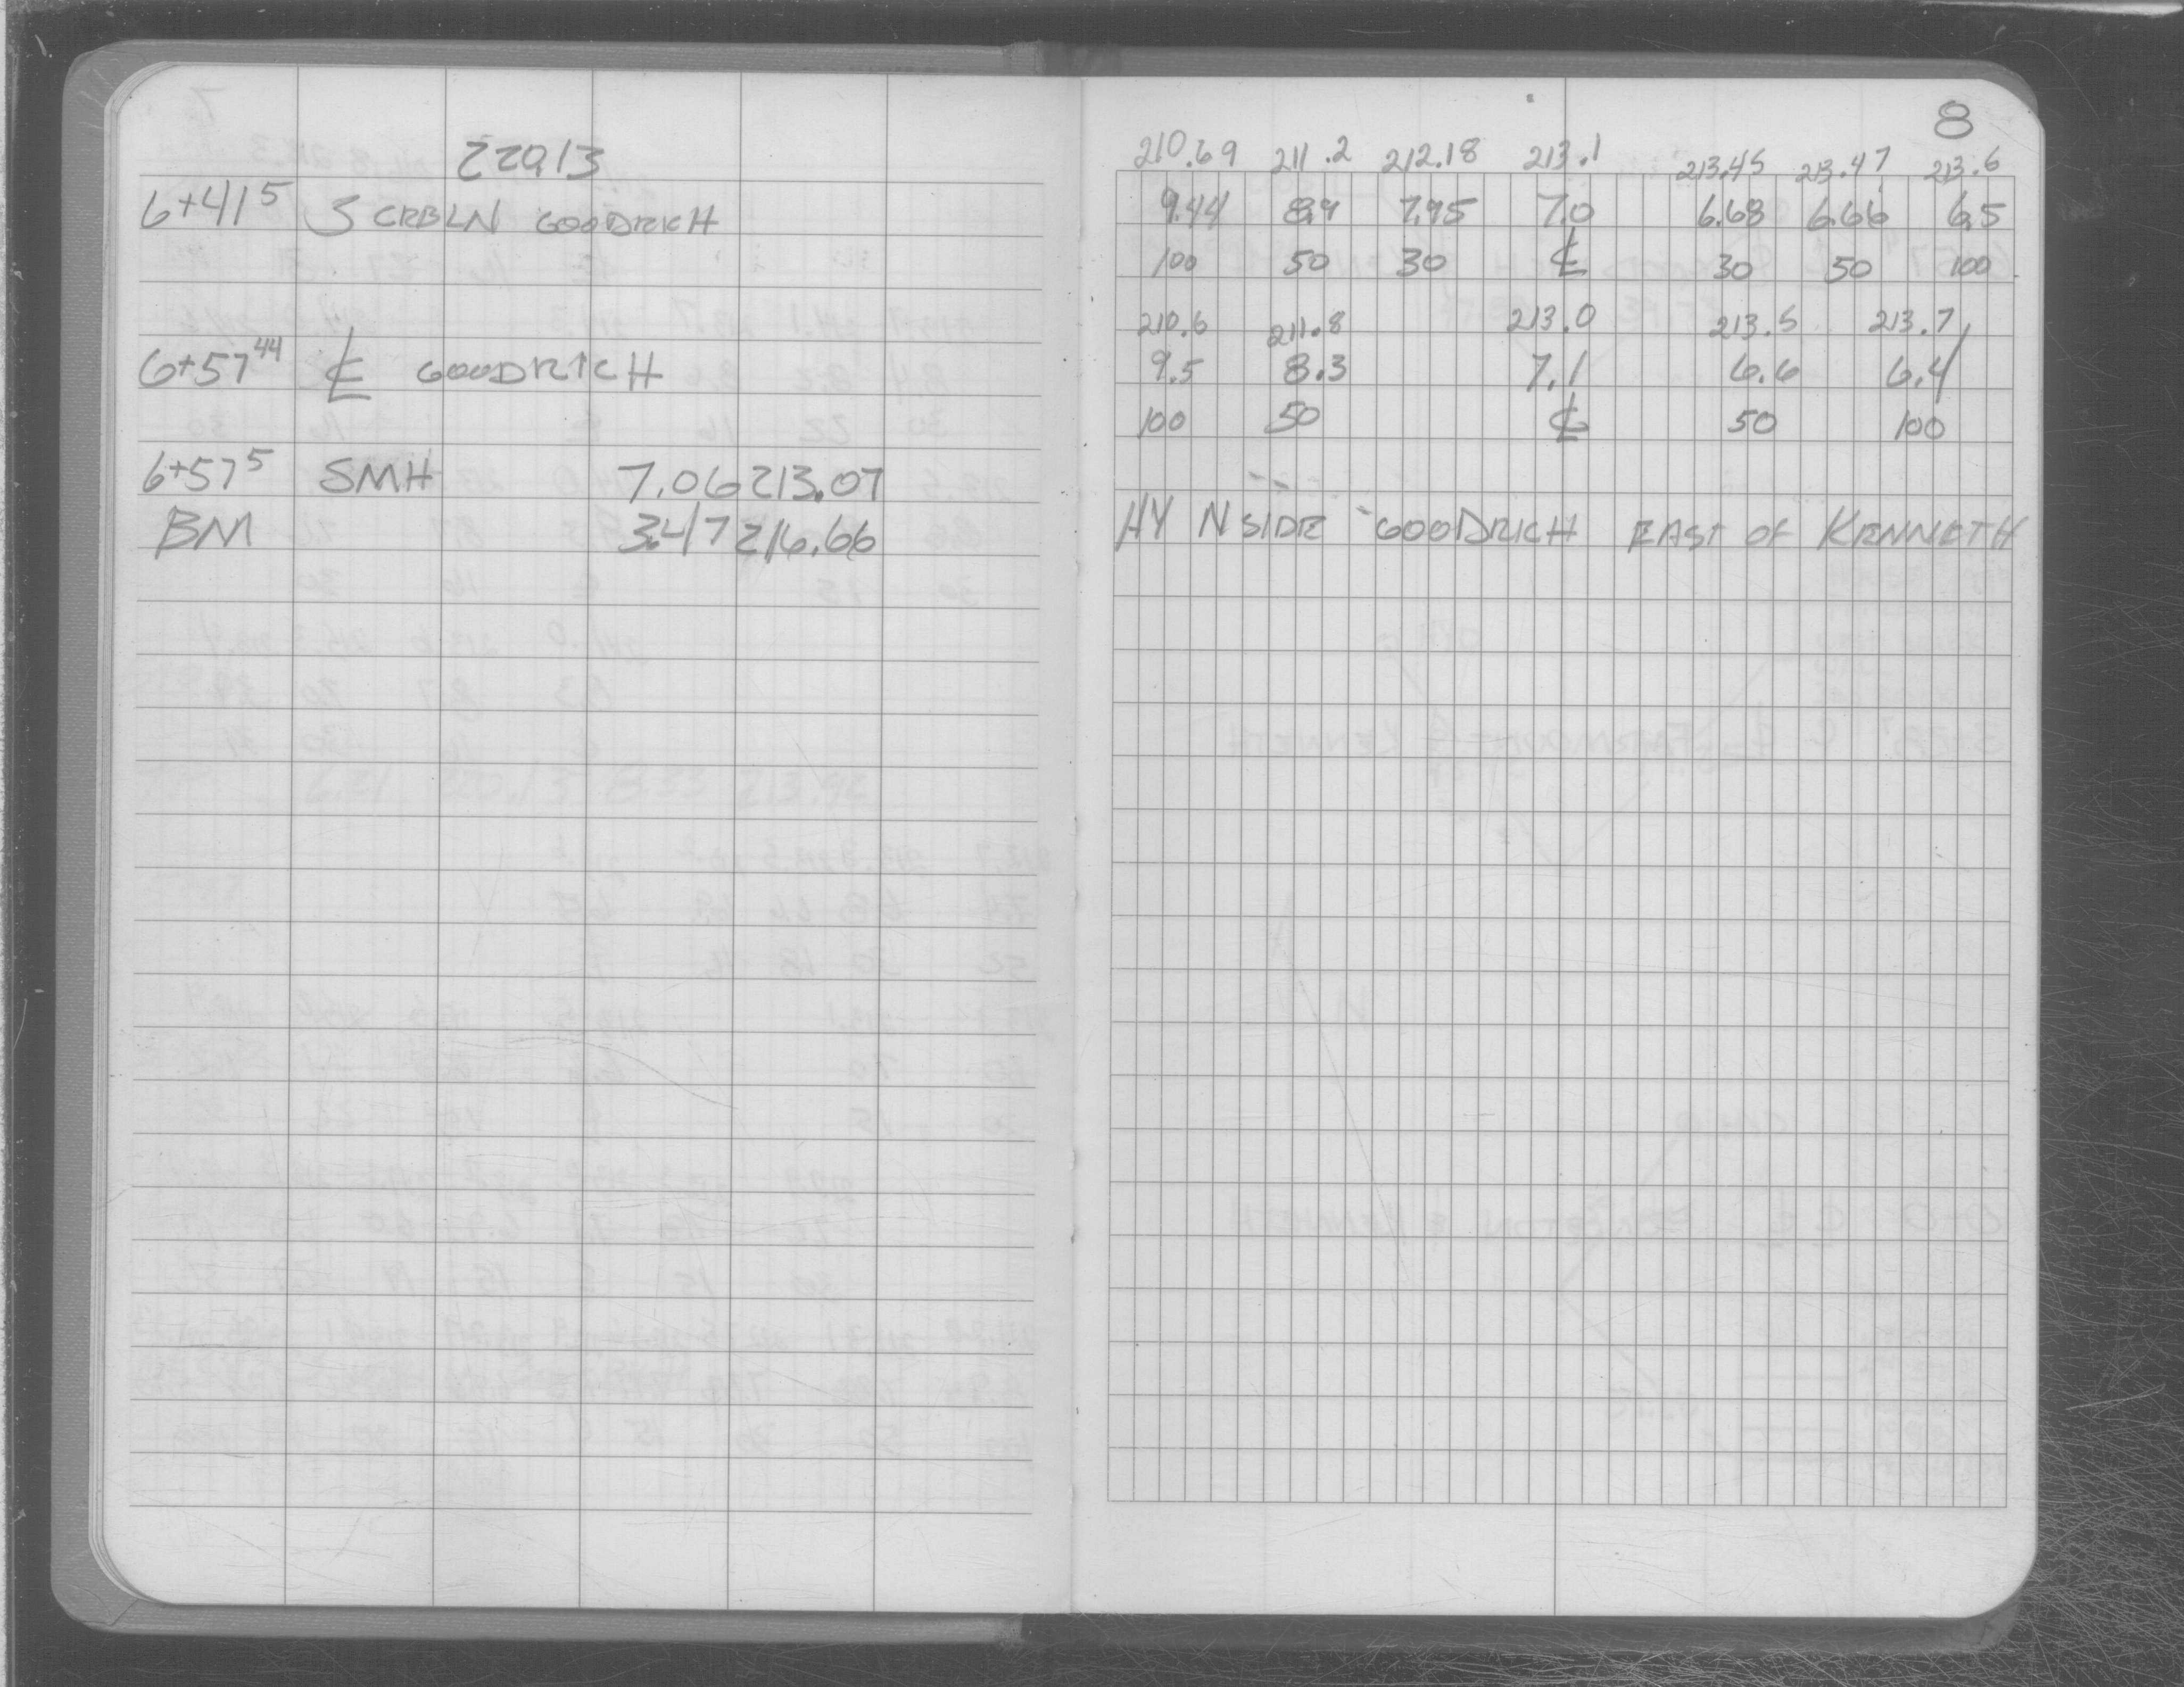 220.13
6+41⁵ S CRBLN GOODRICH
6+57⁴⁴ ℄ GOODRICH
6+57⁵ SMH 7.06 213.07
BM 3.47 216.66
8
210.69 211.2 212.18 213.1 213.45 213.47 213.6
9.44 8.9 7.95 7.0 6.68 6.66 6.5
100 50 30 ℄ 30 50 100
210.6 211.8 213.0 213.5 213.7
9.5 8.3 7.1 6.6 6.4
100 50 ℄ 50 100
HY N SIDE GOODRICH EAST OF KENNETH